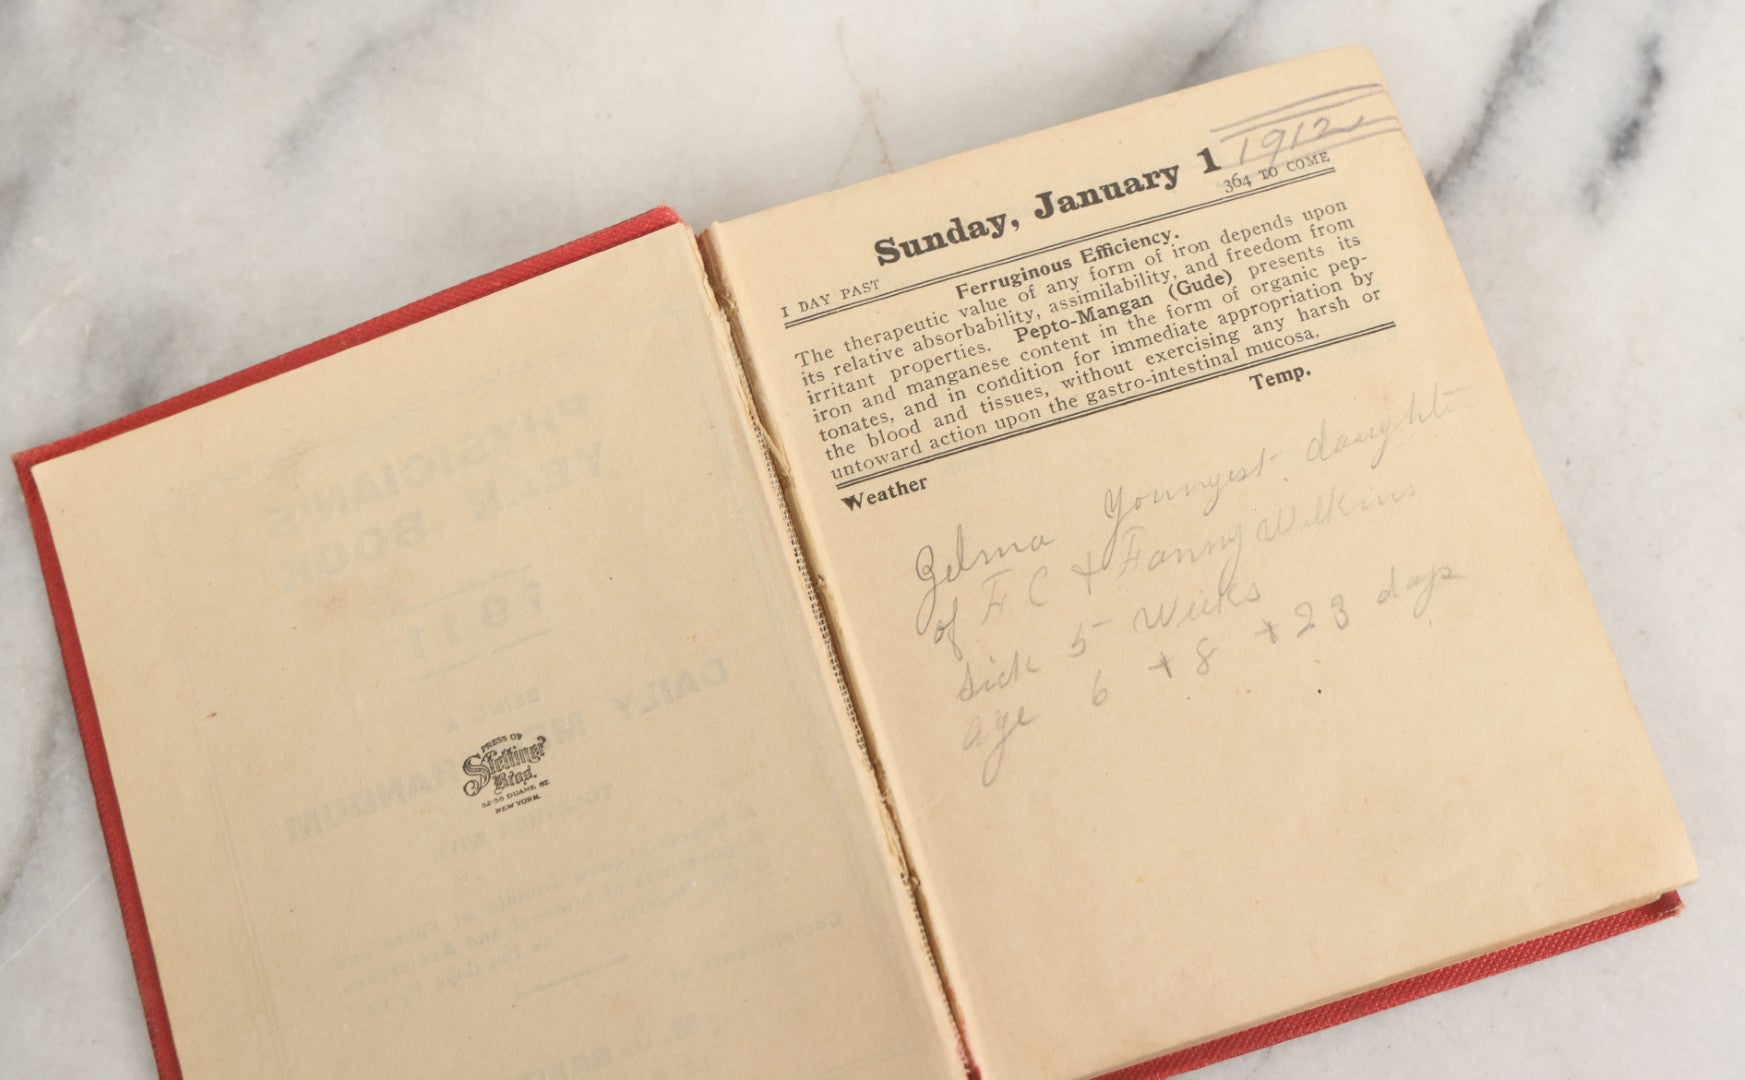 PRESS OF
Stettiner
Bros.
52-58 DUANE ST.
NEW YORK.
PHYSICIAN'S
YEAR BOOK
1911
BEING A
DAILY MEMORANDUM
TOGETHER WITH
1912
Sunday, January 1
1 DAY PAST
364 TO COME
Ferruginous Efficiency.
The therapeutic value of any form of iron depends upon
its relative absorbability, assimilability, and freedom from
irritant properties. Pepto-Mangan (Gude) presents its
iron and manganese content in the form of organic pep-
tonates, and in condition for immediate appropriation by
the blood and tissues, without exercising any harsh or
untoward action upon the gastro-intestinal mucosa.
Weather
Temp.
Zelma Youngest daughter
of F C + Fanny Wilkins
Sick 5 Weeks
age 6 + 8 + 23 days